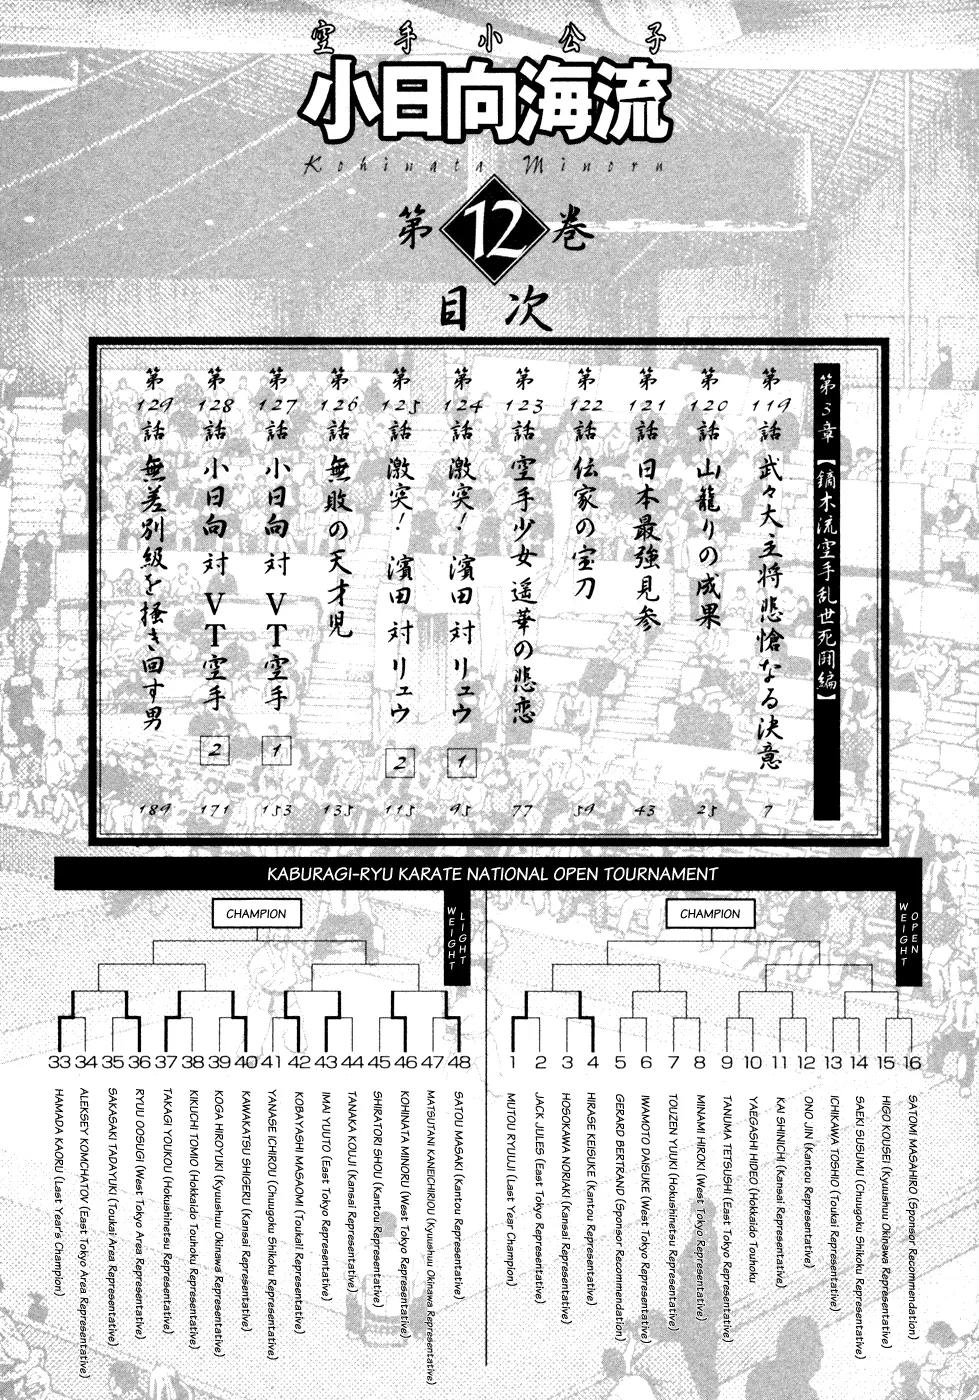 空手小公子
小日向海流
Kohinata Minoru
第12巻
目次
第3章【鏑木流空手乱世死闘編】
第119話 武々大主将悲愴なる決意 7
第120話 山籠りの成果 25
第121話 日本最強見参 43
第122話 伝家の宝刀 59
第123話 空手少女 遥華の悲恋 77
第124話 激突! 濱田 対 リュウ 1 95
第125話 激突! 濱田 対 リュウ 2 115
第126話 無敗の天才児 135
第127話 小日向 対 VT空手 1 153
第128話 小日向 対 VT空手 2 171
第129話 無差別級を掻き回す男 189
KABURAGI-RYU KARATE NATIONAL OPEN TOURNAMENT
LIGHT WEIGHT
CHAMPION
33 HAMADA KAORU (Last Year's Champion)
34 ALEKSEY KOMCHATOV (East Tokyo Area Representative)
35 SAKASAKI TADAYUKI (Toukai Area Representative)
36 RYUU OOSUGI (West Tokyo Area Representative)
37 TAKAGI YOUKOU (Hokushinetsu Representative)
38 KIKUCHI TOMIO (Hokkaido Touhoku Representative)
39 KOGA HIROYUKI (Kyuushuu Okinawa Representative)
40 KAWAKATSU SHIGERU (Kansai Representative)
41 YANASE ICHIROU (Chuugoku Shikoku Representative)
42 KOBAYASHI MASAOMI (Toukaii Representative)
43 IMAI YUUTO (East Tokyo Representative)
44 TANAKA KOUJI (Kansai Representative)
45 SHIRATORI SHOU (Kantou Representative)
46 KOHINATA MINORU (West Tokyo Representative)
47 MATSUTANI KANEICHIROU (Kyuushuu Okinawa Representative)
48 SATOU MASAKI (Kantou Representative)
OPEN WEIGHT
CHAMPION
1 MUTOU RYUUJI (Last Year Champion)
2 JACK JULES (East Tokyo Representative)
3 HOSOKAWA NORIAKI (Kansai Representative)
4 HIRASE KEISUKE (Kantou Representative)
5 GERARD BERTRAND (Sponsor Recommendation)
6 IWAMOTO DAISUKE (West Tokyo Representative)
7 TOUZEN YUUKI (Hokushinetsu Representative)
8 MINAMI HIROKI (West Tokyo Representative)
9 TANUMA TETSUSHI (East Tokyo Representative)
10 YAEGASHI HIDEO (Hokkaido Touhoku
11 KAI SHINICHI (Kansai Representative)
12 ONO JIN (Kantou Representative)
13 ICHIKAWA TOSHIO (Toukai Representative)
14 SAEKI SUSUMU (Chuugoku Shikoku Representative)
15 HIGO KOUSEI (Kyuushuu Okinawa Representative)
16 SATOMI MASAHIRO (Sponsor Recommendation)